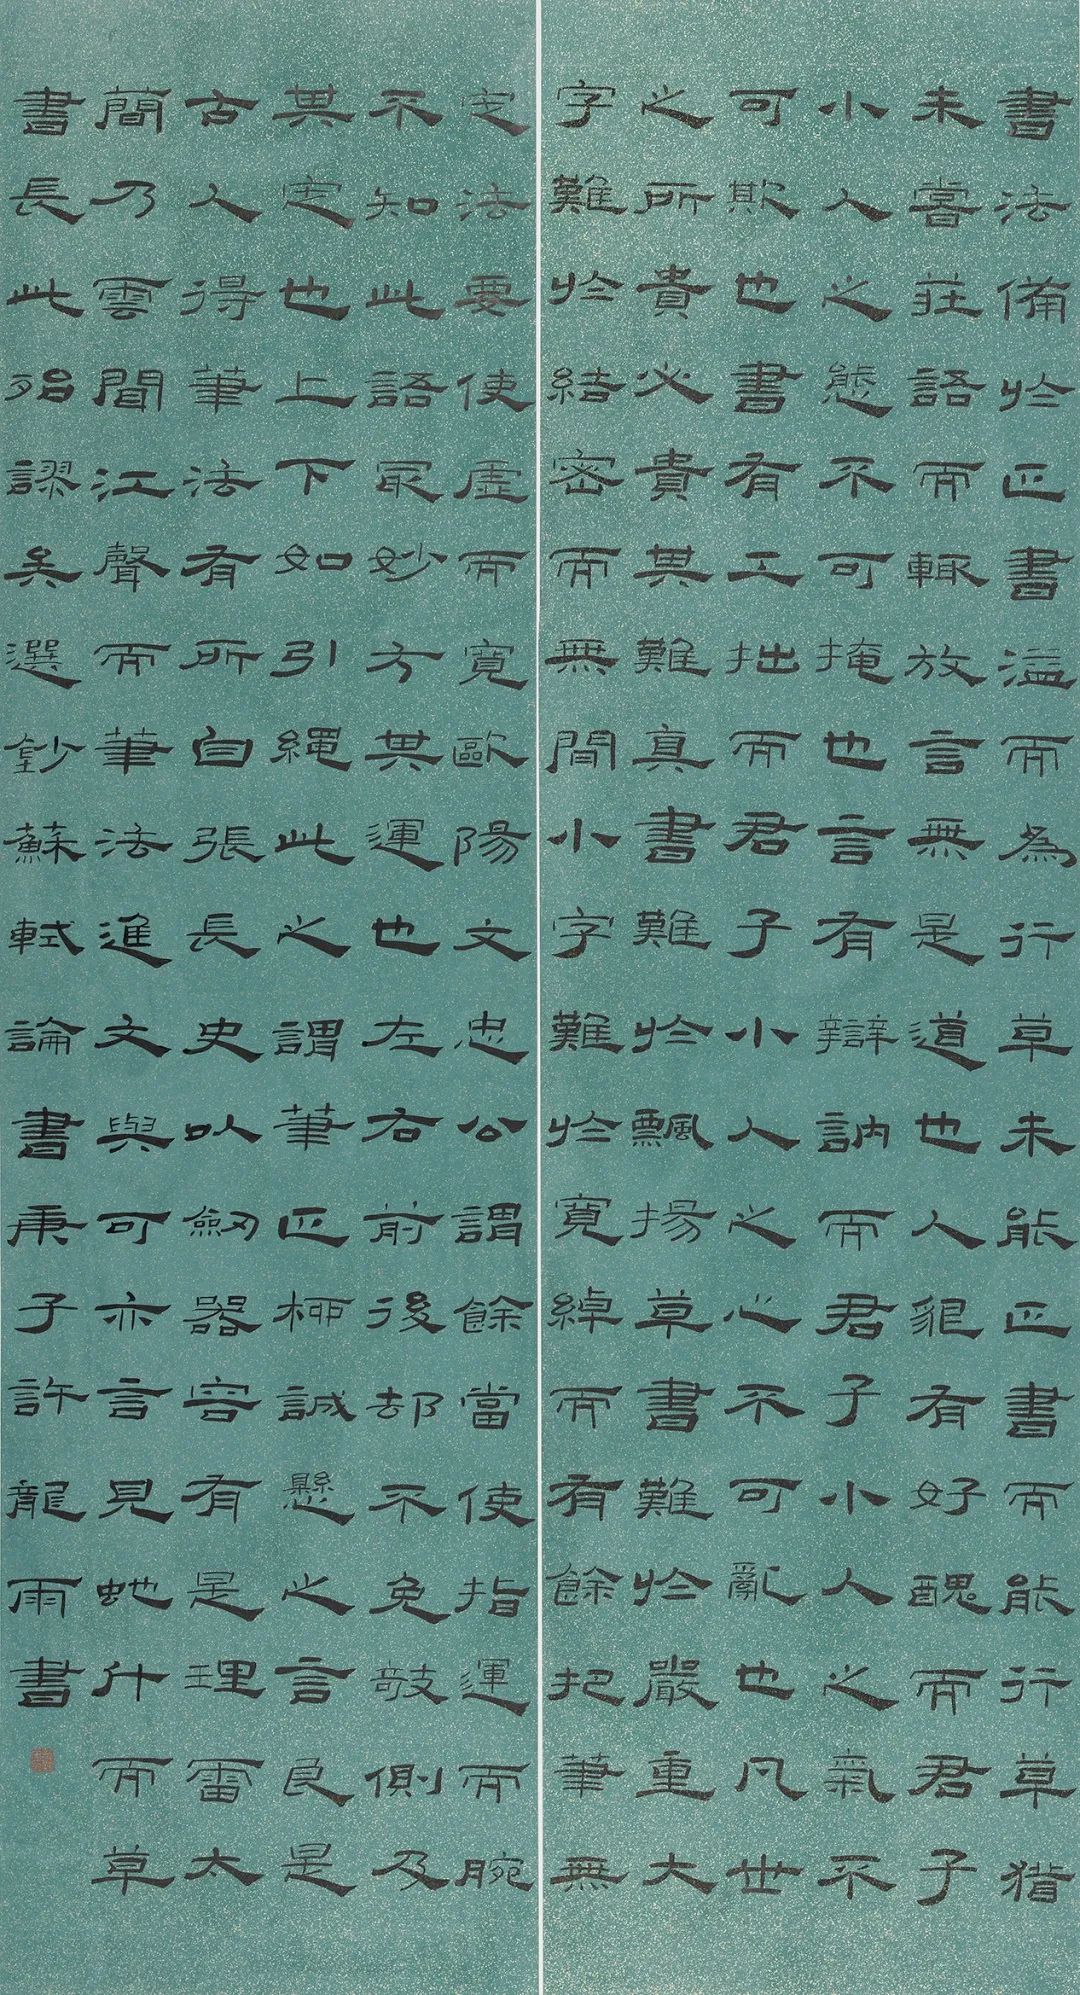 書法備於正書溢而為行草未能正書而能行草猶
未嘗莊語而輒放言無是道也人貌有好醜而君子
小人之態不可掩也言有辯訥而君子小人之氣不
可欺也書有工拙而君子小人之心不可亂也凡世
之所貴必貴其難真書難於飄揚草書難於嚴重大
字難於結密而無間小字難於寬綽而有餘把筆無
定法要使虛而寬歐陽文忠公謂餘當使指運而腕
不知此語最妙方其運也左右前後却不免欹側及
其定也上下如引繩此之謂筆正柳誠懸之言良是
古人得筆法有所自張長史以劍器容有是理雷太
簡乃雲聞江聲而筆法進文與可亦言見虵斗而草
書長此殆謬矣選鈔蘇軾論書庚子許龍雨書